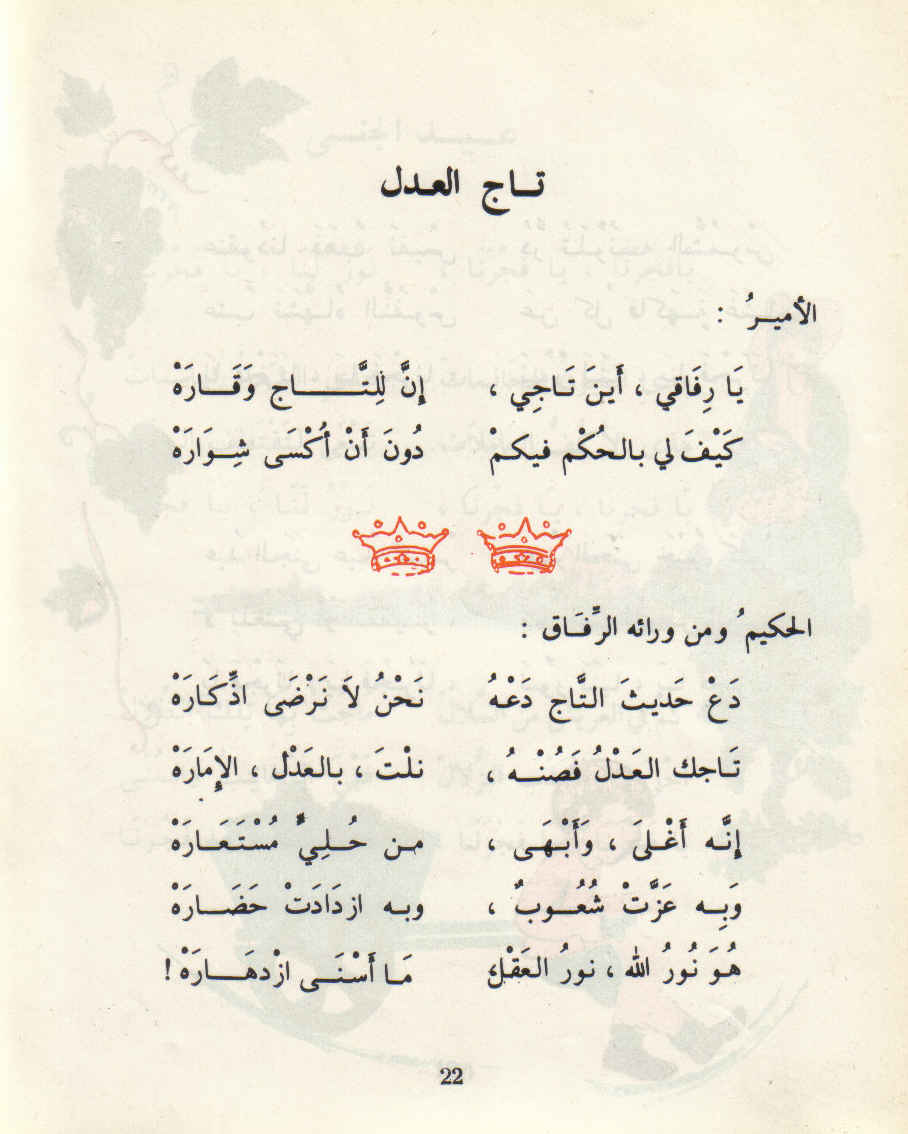 تاج العدل
الأميرُ :
يَا رِفَاقي ، أَينَ تَاجِي ، إِنَّ لِلتَّاجِ وَقَارَهْ
كَيْفَ لي بالحُكْم فيكمْ دُونَ أَنْ أُكْسَى شِوَارَهْ
الحكيمُ ومن ورائه الرِّفَاق :
دَعْ حَديثَ التَّاج دَعْهُ نَحْنُ لاَ نَرْضَى ادِّكَارَهْ
تَاجك العَدْلُ فَصُنْهُ ، نلْتَ ، بالعَدْل ، الإِمَارَهْ
إِنَّه أَغْلَى ، وَأَبْهَى ، من حُلِيٍّ مُسْتَعَارَهْ
وَبِه عَزَّتْ شُعُوبٌ ، وبه ازدَادَتْ حَضَارَهْ
هُوَ نُورُ الله ، نورُ العَقْل مَا أَسْنَى ازْدهَارَهْ !
22